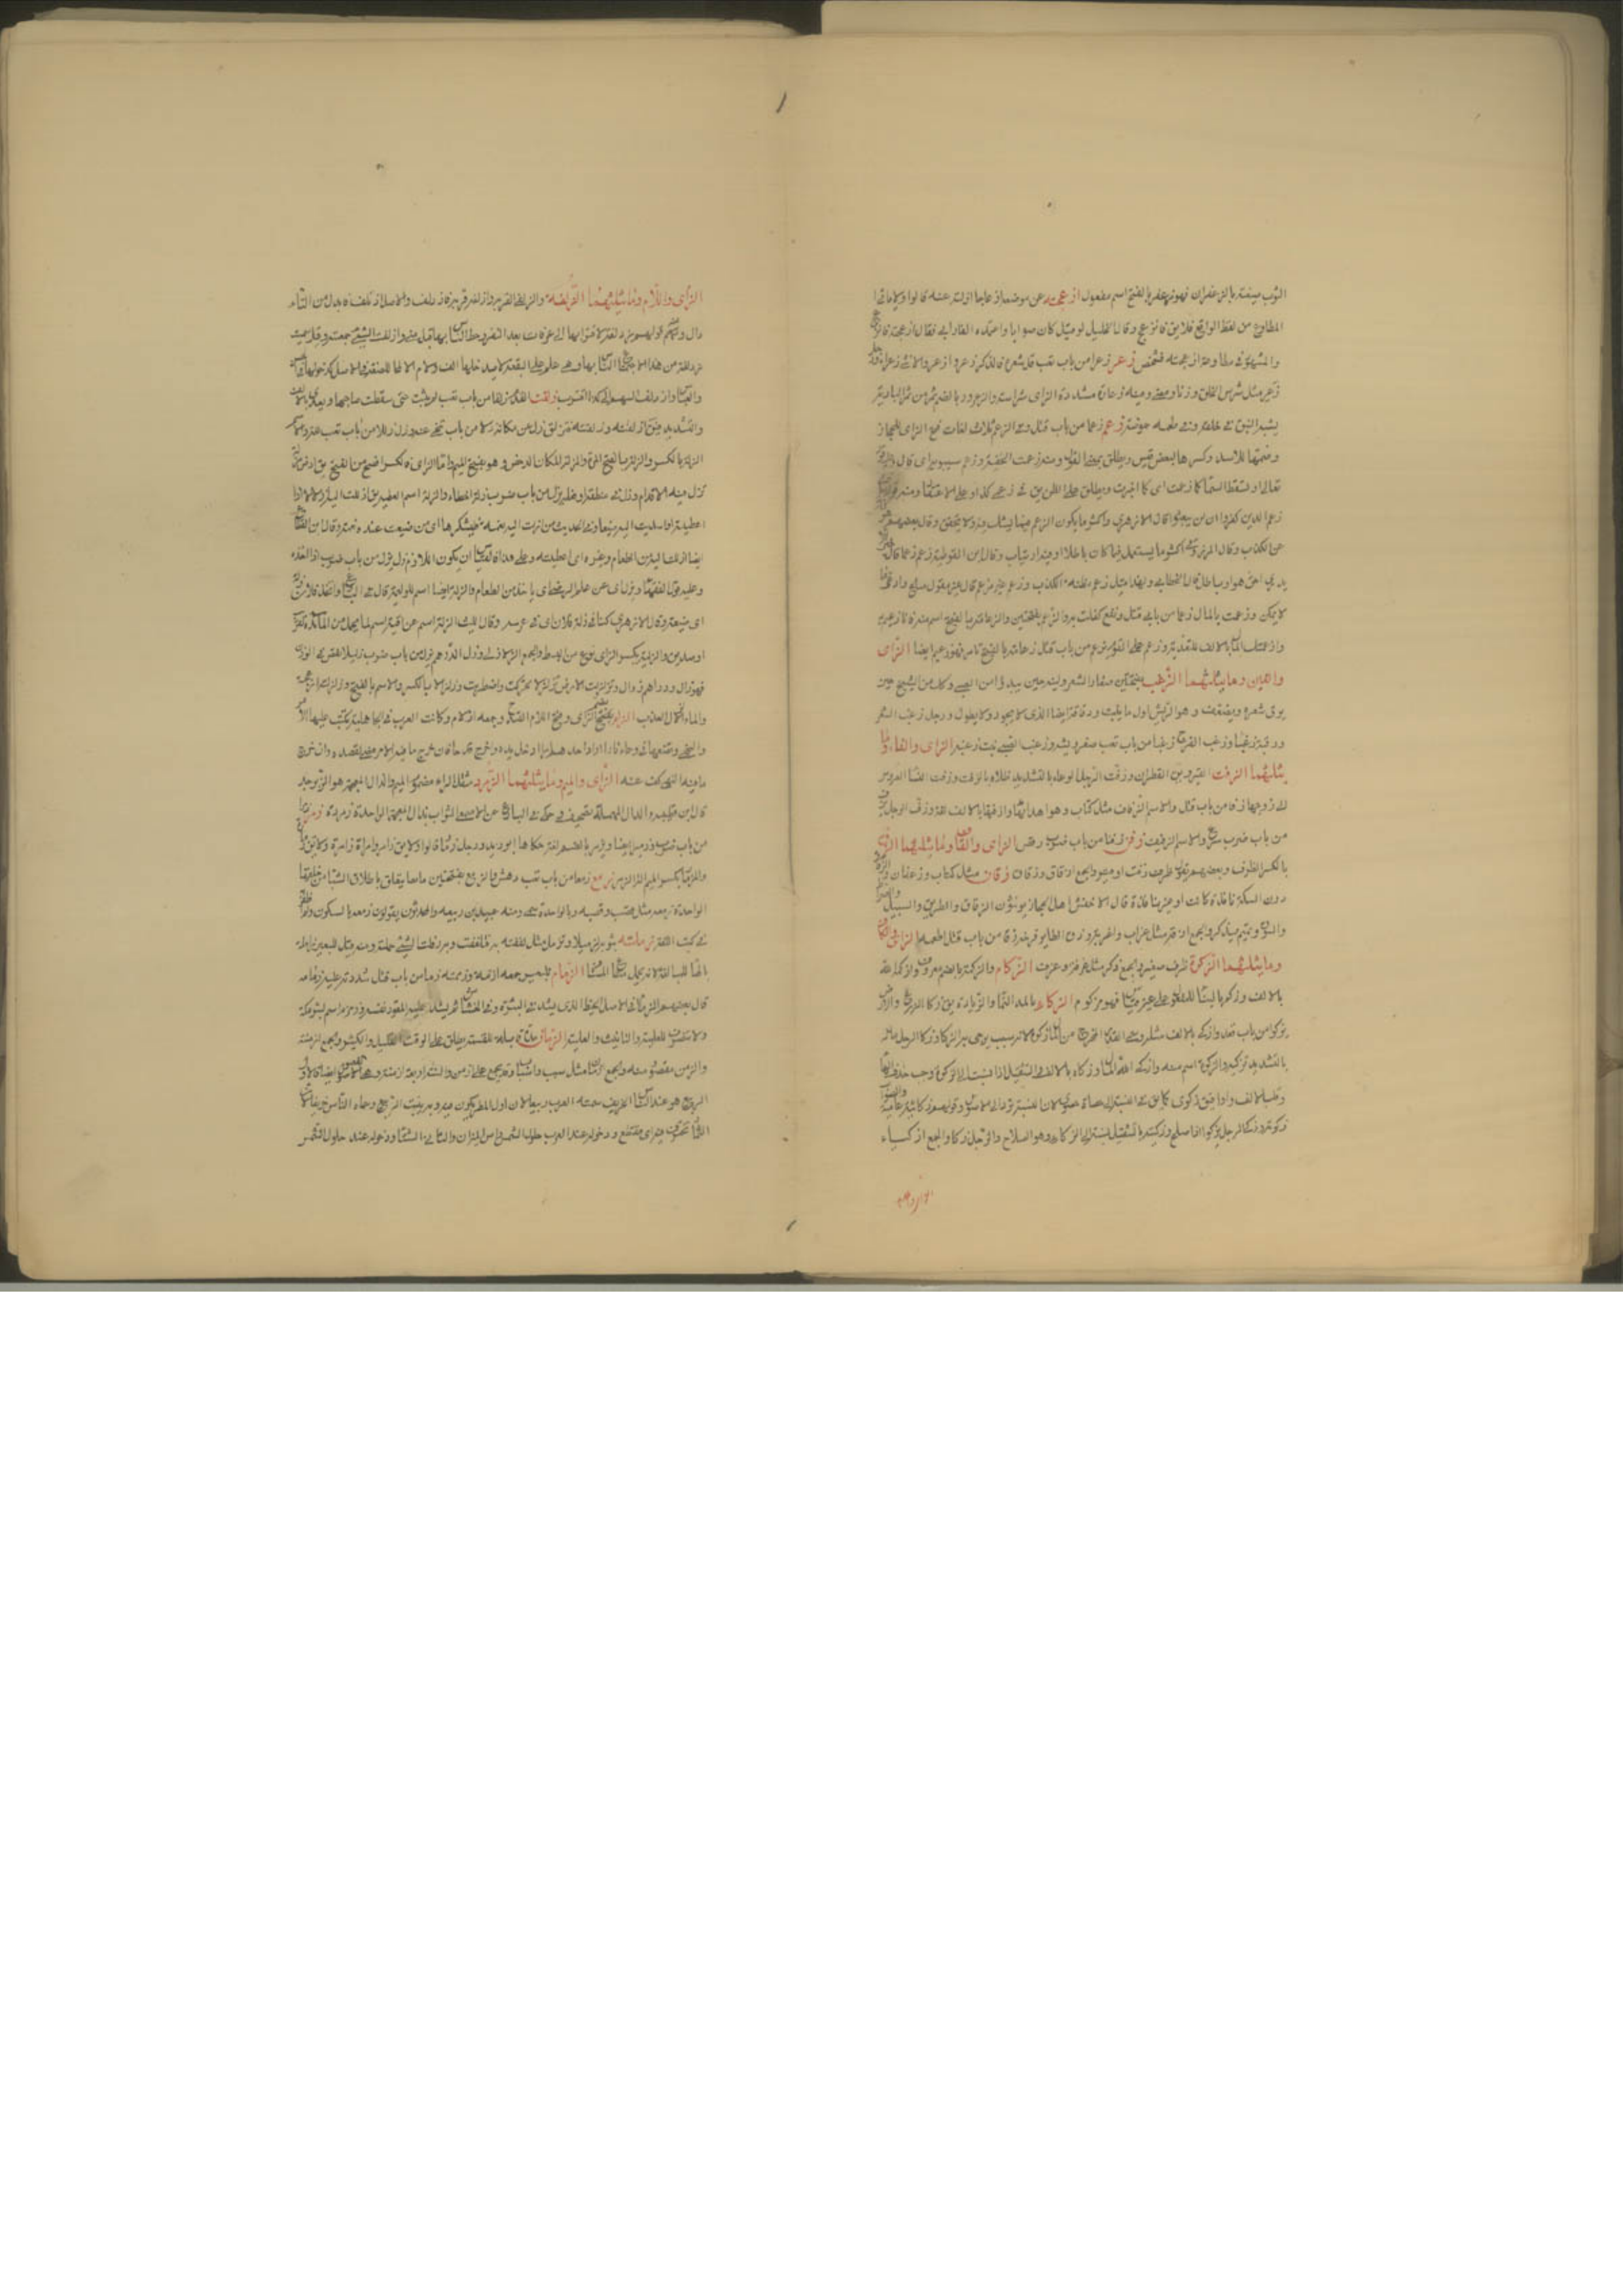 الثوب صبغته بالزعفران فهو مزعفر بالفتح اسم مفعول ازعجته عن موضعه ازعاجا ازلته عنه قالوا ولا ياتي
المطاوع من لفظ الواقع فلا يق فانزعج وقال الخليل لو قيل كان صوابا واعتمده الفارابي فقال ازعجته فانزعج
والمشهور في مطاوعه ازعجته فشخص زعر زعرا من باب تعب قل شعره فالذكر ازعر والانثى زعراء
زعر مثل شرس الخلق وزنا ومعنى ومنه زعارة مشددة الراء اي شراسة والزعرور بالضم ثمر من ثمر البادية
يشبه النبق في خلقه وفي طعمه حموضة زعم زعما من باب قتل وفي الزعم ثلاث لغات فتح الزاي للحجاز
وضمها للاسد وكسرها لبعض قيس ويطلق بمعنى القول ومنه زعمت الحنفية وزعم سيبويه اي قال
تعالى او تسقط السماء كما زعمت اي كما اخبرت ويطلق على الظن يق في زعمي كذا وعلى الاعتقاد ومنه قوله
زعم الذين كفروا ان لن يبعثوا قال الازهري واكثر ما يكون الزعم فيما يشك فيه ولا يتحقق وقال بعضهم هو كناية
عن الكذب وقال المرزوقي اكثر ما يستعمل فيما كان باطلا او فيه ارتياب وقال ابن القوطية زعم زعما قال
يدري احق هو او باطل قال الخطابي ولهذا قيل زعم مطية الكذب وزعم غير مزعم قال غير مقول صالح وادعى ما
لا يمكن وزعمت بالمال زعما من باب قتل ونفع كفلت به والزعم بفتحتين والزعامة بالفتح اسم منه فانا زعيم به
وازعمتك المال بالالف للتعدية وزعم على القوم يزعم من باب قتل زعامة بالفتح تامر فهو زعيم ايضا الزاي
والغين وما يثلثهما الزغب بفتحتين صغار الشعر ولينه حين يبدو من الصبي وكذلك من الشيخ حين
يرق شعره ويضعف وهو الريش اول ما ينبت ودقاقه ايضا الذي لا يجود ولا يطول ورجل زغب الشعر
ورقبة زغباء وزغب الفرخ زغبا من باب تعب صغر ريشه وزغب الصبي نبت زغبه الزاي والفاء وما
يثلثهما الزفت القير ويق القطران وزفت الرجل الوعاء بالتشديد طلاه بالزفت وزفت النساء العروس
الى زوجها زفا من باب قتل والاسم الزفاف مثل كتاب وهو اهداؤها وازفها بالالف لغة وزف الرجل
من باب ضرب اسرع والاسم الزفيف زفن زفنا من باب ضرب رقص الزاي والقاف وما يثلثهما الزق
بالكسر الظرف وبعضهم يقول ظرف زفت او قير والجمع ازقاق وزقاق مثل كتاب وزقان
دون السكة نافذة كانت او غير نافذة قال الاخفش اهل الحجاز يؤنثون الزقاق والطريق والسبيل
والسوق وتميم يذكر والجمع ازقة مثل غراب واغربة وزق الطاير فرخه زقا من باب قتل اطعمه الزاي والكاف
وما يثلثهما الزكرة ظرف صغير والجمع زكر مثل غرفة وغرف الزكام والزكمة بالضم معروف وازكمه الله
بالالف وزكم بالبناء للمفعول على غير قياس فهو مزكوم الزكاء بالمد النماء والزيادة يق زكا الزرع والارض
يزكو من باب قعد وازكى بالالف مثله وسمي القدر المخرج من المال زكوة لانه سبب يرجى به الزكا وزكى الرجل ماله
بالتشديد تزكية والزكوة اسم منه وازكى الله المال وزكاه بالالف والتثقيل اذا نسبت الى الزكوة وجب حذف الهاء
وقلب الالف واوا فيق زكوي كما يق في النسبة الى حصاة حصوي لان النسبة ترد الى الاصول وقولهم زكاتية عامية
زكوته وزكا الرجل يزكو اذا صلح وزكيته بالتثقيل نسبته الى الزكاء وهو الصلاح والرجل زكي والجمع ازكياء
الزاي واللام وما يثلثهما الزلفة والزلفى القربة وازلفه قربه فازدلف والاصل ازتلف فابدل من التاء
دال ومنه مزدلفة لاقترابها الى عرفات بعد الافاضة وازلفت الشيء جمعته وقيل سميت
مزدلفة من هذا لاجتماع الناس بها وهي علم على البقعة لا يدخلها الف ولام الا لمحا للصفة في الاصل
وازدلف السهم الى كذا اقترب زلقت القدم زلقا من باب تعب لم يثبت حتى سقطت
والتشديد فيق ازلقته وزلقته فتزلق زل عن مكانه زلا من باب ضرب تنحى عنه وزل زللا من باب تعب لغة والاسم
الزلة بالكسر والزلة بالفتح المرة والمزلة المكان الدحض وهو بفتح الميم واما الزاي فالكسر افصح من الفتح يق ارض مزلة
تزل فيه الاقدام وزل في منطقه او فعله يزل من باب ضرب زلة اخطاء والزلة اسم العطية يق ازللت اليه
اعطيته او اسديت اليه صنيعا وفي الحديث من ازلت اليه نعمة فليشكرها اي من صنعت عنده نعمة وقال ابن القطاع
ايضا ازللت اليه من الطعام وغيره اي اعطيته وعلى هذا فالقياس ان يكون الثلاثي زل يزل من باب ضرب اذا اخذه
وعليه قول الفقهاء ويزل اي عن علم الرضى اي ياخذ من الطعام والزلة ايضا اسم للوليمة قال في البارع واتخذ فلان زلة
اي صنيعة وقال الازهري كنا في زلة فلان اي في عرسه وقال الليث الزلة اسم عراقية اسم لما يحمل من المائدة لقريب
او صديق والزلية بكسر الزاي نوع من البسط والجمع الزلالي وزل الدرهم يزل من باب ضرب زليلا نقص في الوزن
فهو زال ودراهم زوال وتزلزلت الارض زلزالا تحركت واضطربت وزلزالا بالكسر والاسم بالفتح
والماء الزلال العذب الزلم بفتح الزاي وفتح اللام القدح وجمعه ازلام وكانت العرب في الجاهلية تكتب عليها الامر
والنهي وتضعها في وعاء فاذا اراد احدهم امرا ادخل يده واخرج قدحا فان خرج ما فيه الامر مضى لقصده وان خرج
ما فيه النهي كف عنه الزاي والميم وما يثلثهما الزمرد مثقل الراء مضموم الميم والذال المعجمة هو الزبرجد
قال ابن قتيبة والدال المهملة تصحيف حكى في البارع عن الاصمعي الصواب بذال المعجمة الواحدة زمردة زمر زمرا
من باب ضرب وزميرا ايضا ويزمر بالضم لغة حكاها ابو زيد ورجل زمار قالوا ولا يق زامر وامراة زامرة ولا يق زمارة
والمزمار بكسر الميم الة الزمر زمع زمعا من باب تعب دهش والزمع بفتحتين ما يتعلق باظلاف الشاء من خلفها
الواحدة زمعة مثل قصب وقصبة وبالواحدة سمي ومنه عبد بن زمعة والمحدثون يقولون زمعة بالسكون
في كتب اللغة زملته بثوبه تزميلا وتزمل مثل لففته به فتلفف به وزملت الشيء حملته ومنه قيل للبعير زاملة
الهاء للمبالغة لانه يحمل متاع المسافر الزمام للبعير جمعه ازمة وزممته زما من باب قتل شددت عليه زمامه
قال بعضهم الزمام في الاصل الخيط الذي يشد في البرة او في الخشاش ثم يشد عليه المقود نفسه وزمزم اسم لبئر مكة
ولا تنصرف للعلمية والتانيث الزمان مدة قابلة للقسمة يطلق على الوقت القليل والكثير والجمع ازمنة
والزمن مقصور منه والجمع ازمان مثل سبب واسباب وقد يجمع على ازمن والسنة اربعة ازمنة وهي الفصول ايضا فالاول
الربيع هو عند الناس الخريف سمته العرب ربيعا لان اول المطر يكون فيه وبه ينبت الربيع وسماه الناس خريفا لان
الثمار تخترف فيه اي تقطع ودخوله عند العرب حلول الشمس راس الميزان والثاني الشتاء ودخوله عند حلول الشمس